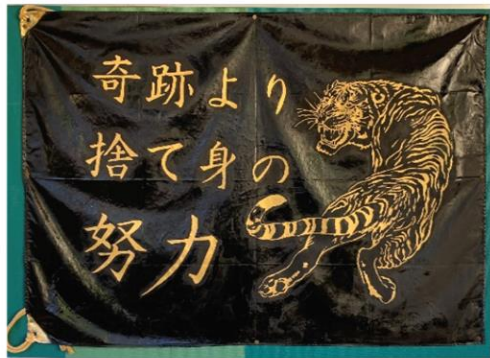 奇跡より
捨て身の
努力